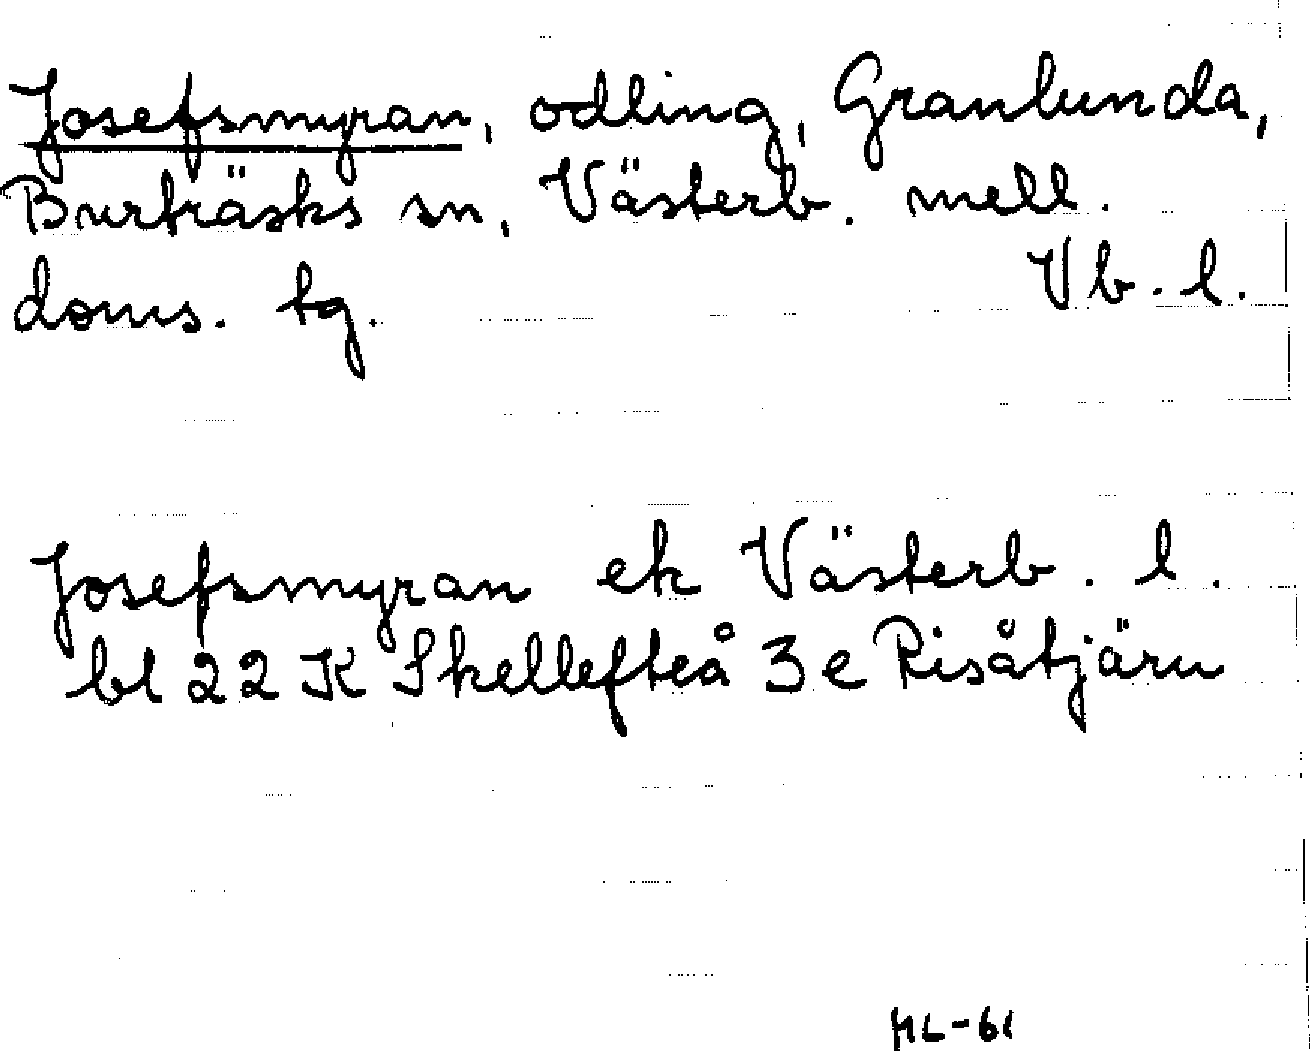 Josefsmyran, odling, Granlunda,
Burträsks sn, Västerb. mell.
doms. tg. Vb. l.
Josefsmyran ek Västerb. l.
bl 22 K Skellefteå 3e Risåtjärn
HL-61